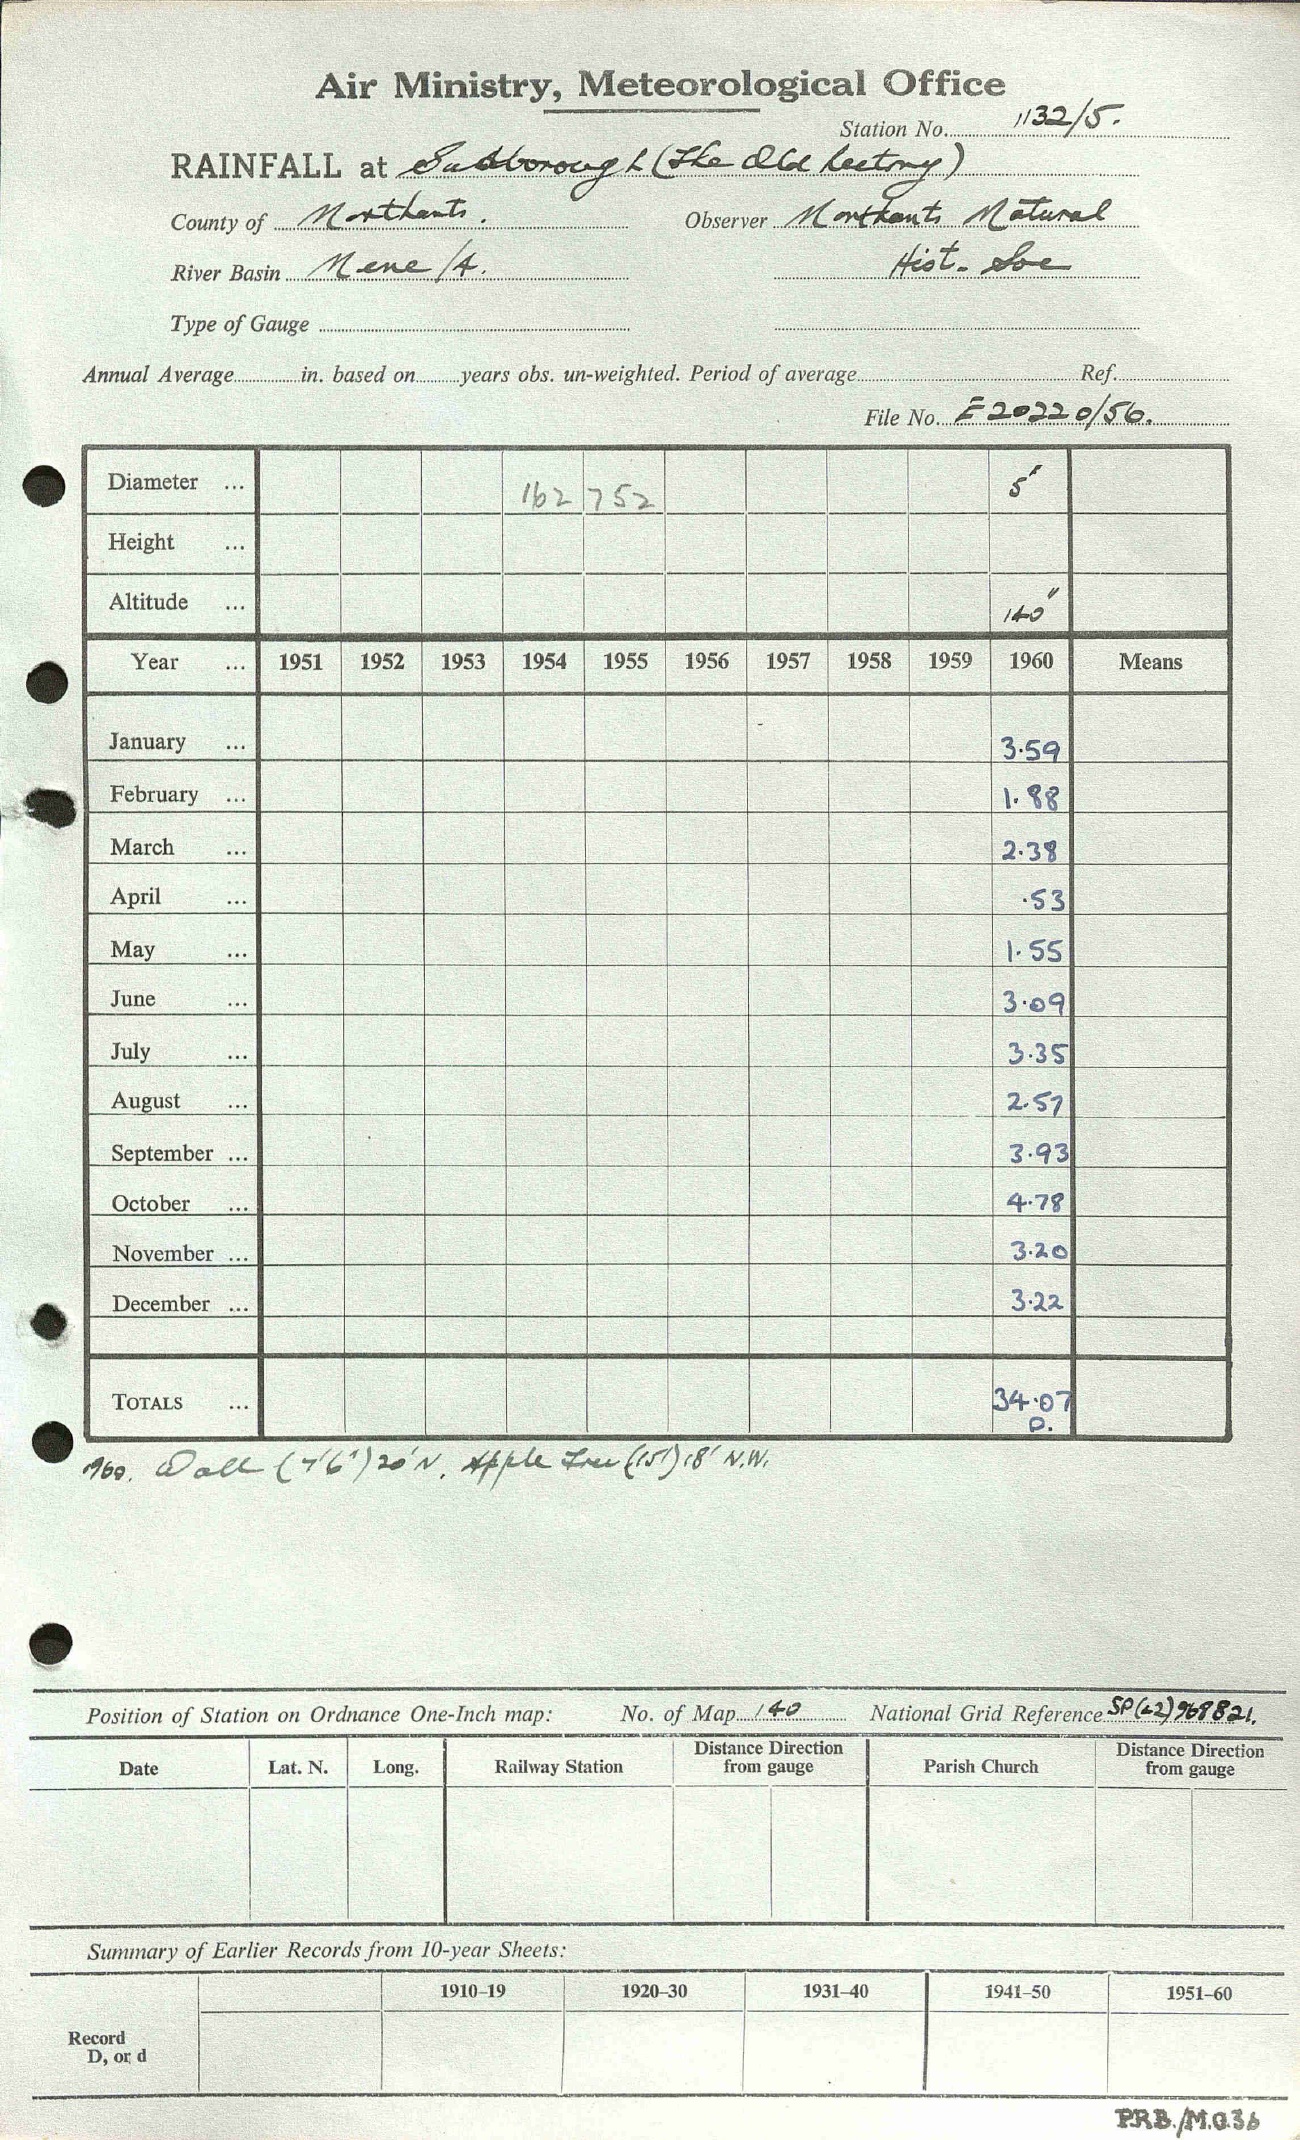 Air Ministry, Meteorological Office
Station No. 1132/5.
RAINFALL at Sudborough (The Old Rectory)
County of Northants. Observer Northants Natural
River Basin Nene /4. Hist. Soc
Type of Gauge
Annual Average in. based on years obs. un-weighted. Period of average Ref.
File No. E20220/56.
Diameter ... 162 752 5"
Height ...
Altitude ... 140"
Year ... 1951 1952 1953 1954 1955 1956 1957 1958 1959 1960 Means
January ... 3.59
February ... 1.88
March ... 2.38
April ... .53
May ... 1.55
June ... 3.09
July ... 3.35
August ... 2.57
September ... 3.93
October ... 4.78
November ... 3.20
December ... 3.22
TOTALS ... 34.07
D.
1960. Wall (7'6") 20' N. Apple Tree (15') 18' N.W.
Position of Station on Ordnance One-Inch map: No. of Map 140 National Grid Reference SP(42)968821.
Date Lat. N. Long. Railway Station Distance Direction from gauge Parish Church Distance Direction from gauge
Summary of Earlier Records from 10-year Sheets:
1910–19 1920–30 1931–40 1941–50 1951–60
Record
D, or d
PRB./M.O.36